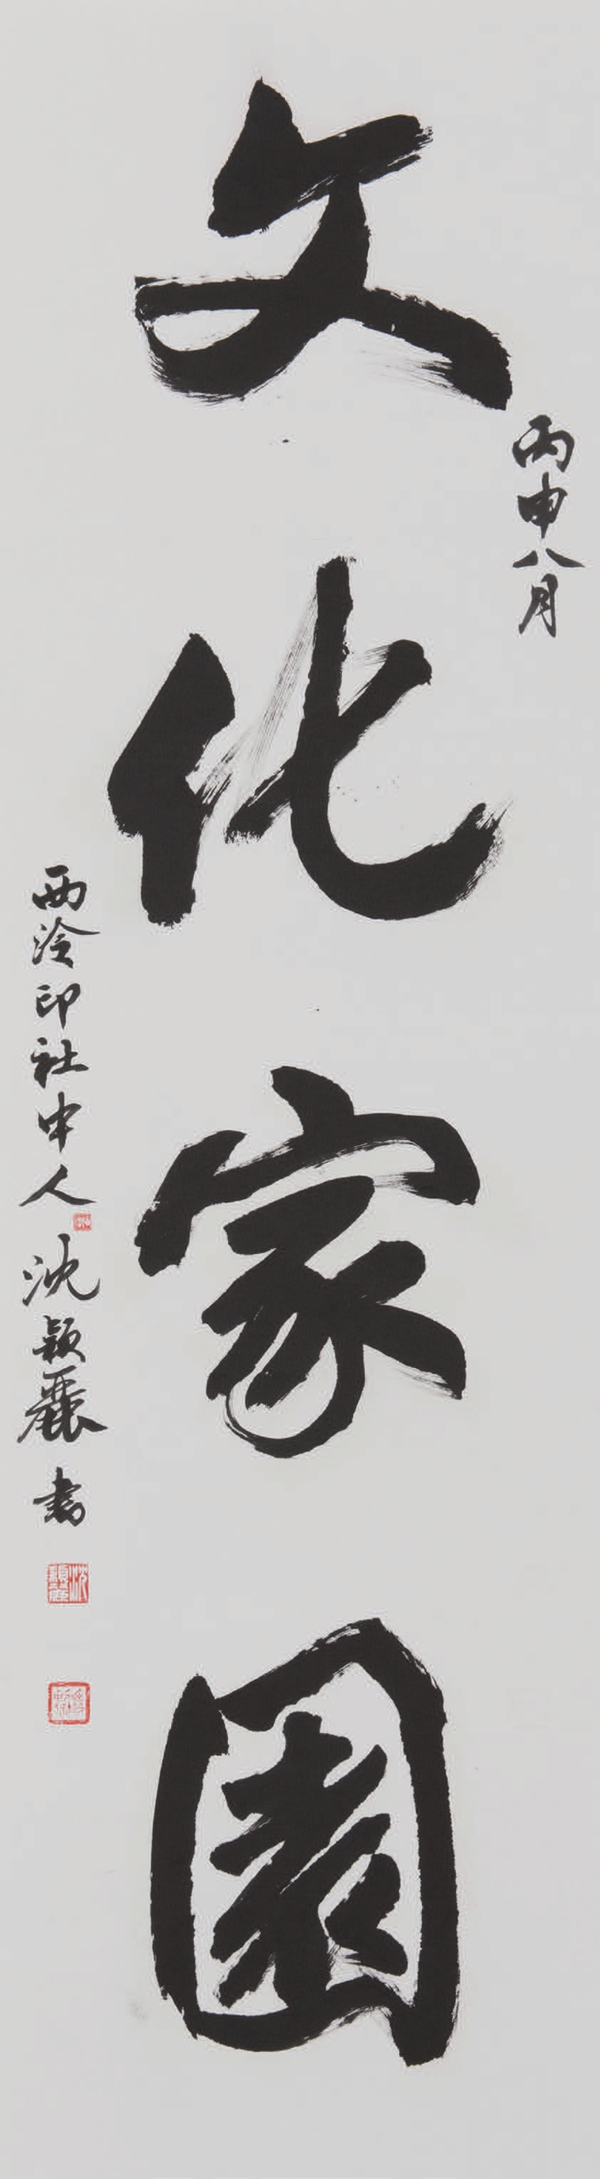 文化家園
丙申八月
西泠印社中人
沈穎麗書